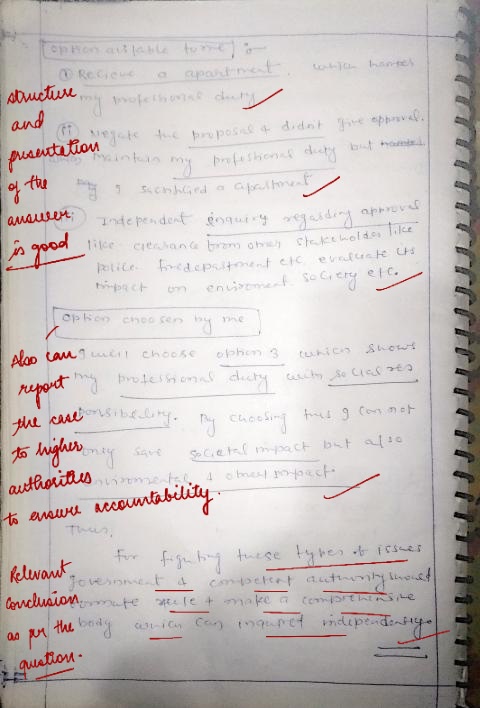 option avilable to me :-
(i) Recieve a apartment, which hamper
my professional duty
(ii) negate the proposal & didn't give approval.
which maintain my profesional duty but
I sacrified a apartment
Independent enquiry regarding approval
like clearance from other stakeholder like
police, firedepartment etc, evaluate its
impact on enviroment, society etc.
option choosen by me
I will choose option 3 which shows
my professional duty with social res
ponsibality. By choosing this I can not
only save societal impact but also
environmental & other impact.
Thus,
For fighting these types of issues
government & competent authority should
formate rule & make a comprehensive
body which can inquret independenty.
structure
and
presentation
of the
answer
is good
Also can
report
the case
to higher
authorities
to ensure accountability.
Relevant
conclusion
as per the
question.